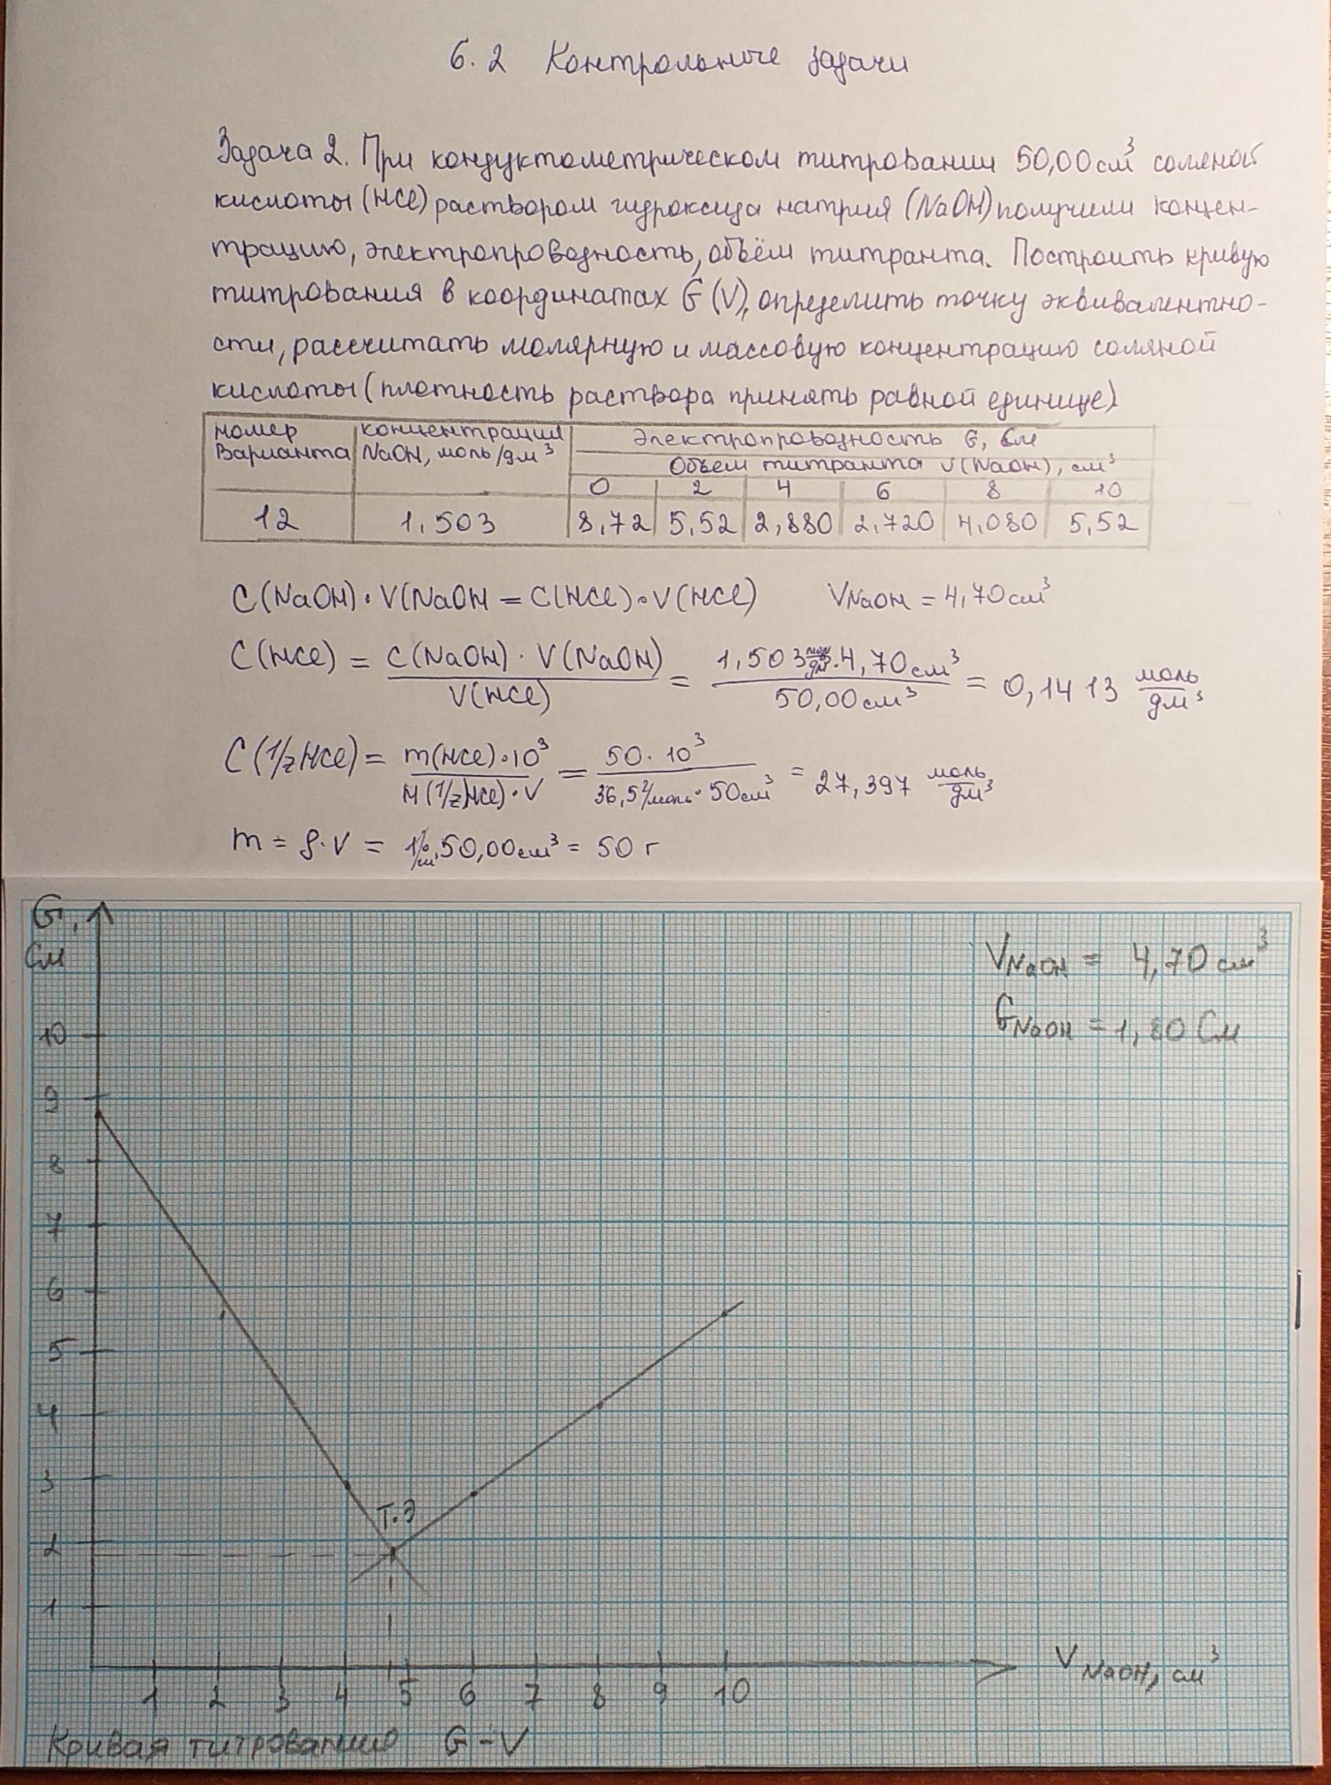 6.2 Контрольные задачи
Задача 2. При кондуктометрическом титровании 50,00 см³ соляной
кислоты (HCl) раствором гидроксида натрия (NaOH) получили концен-
трацию, электропроводность, объём титранта. Построить кривую
титрования в координатах G (V), определить точку эквивалентно-
сти, рассчитать молярную и массовую концентрацию соляной
кислоты (плотность раствора принять равной единице)
номер варианта | концентрация NaOH, моль/дм³ | Электропроводность G, См
Объем титранта V(NaOH), см³
0 2 4 6 8 10
12 1,503 8,72 5,52 2,880 2,720 4,080 5,52
C(NaOH)·V(NaOH = C(HCl)·V(HCl) VNaOH = 4,70 см³
C(HCl) = C(NaOH)·V(NaOH) / V(HCl) = 1,503 моль/дм³·4,70 см³ / 50,00 см³ = 0,1413 моль/дм³
C(1/zHCl) = m(HCl)·10³ / M(1/zHCl)·V = 50·10³ / 36,5 г/моль·50 см³ = 27,397 моль/дм³
m = ρ·V = 50,00 см³ = 50 г
G, См
VNaOH = 4,70 см³
GNaOH = 1,80 См
10
9
8
7
6
5
4
3
Т.Э
2
1
1 2 3 4 5 6 7 8 9 10
V NaOH, см³
Кривая титрования G-V